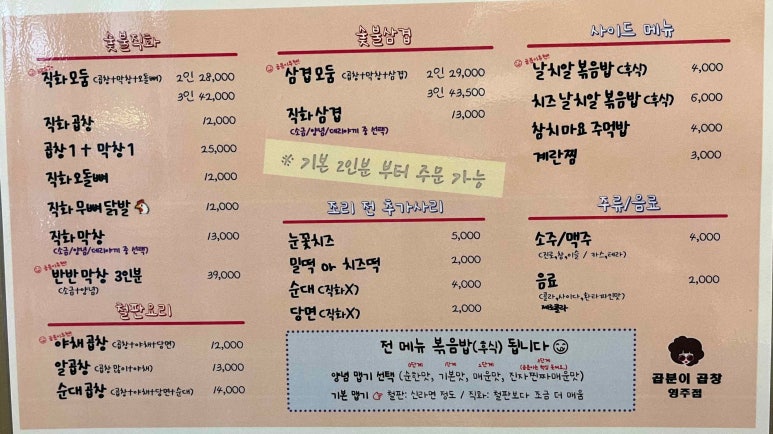 숯불직화
직화모둠 (곱창+막창+오돌뼈) 2인 28,000
3인 42,000
직화 곱창 12,000
곱창1 + 막창1 25,000
직화 오돌뼈 12,000
직화 무뼈 닭발 12,000
직화 막창 13,000
(소금/양념/데리야끼 중 선택)
반반 막창 3인분 39,000
(소금+양념)
철판요리
야채곱창 (곱창+야채+당면) 12,000
알곱창 (곱창 많이+야채) 13,000
순대곱창 (곱창+야채+당면+순대) 14,000
숯불삼겹
삼겹모둠 (곱창+막창+삼겹) 2인 29,000
3인 43,500
직화 삼겹 13,000
(소금/양념/데리야끼 중 선택)
※ 기본 2인분 부터 주문 가능
조리 전 추가사리
눈꽃치즈 5,000
밀떡 or 치즈떡 2,000
순대 (직화X) 4,000
당면 (직화X) 2,000
사이드 메뉴
날치알 볶음밥 (후식) 4,000
치즈 날치알 볶음밥 (후식) 6,000
참치마요 주먹밥 4,000
계란찜 3,000
주류/음료
소주/맥주 4,000
(진로,참,이슬 / 카스,테라)
음료 2,000
(콜라,사이다,환타파인맛)
제로콜라
전 메뉴 볶음밥(후식) 됩니다
0단계 1단계 2단계 3단계
양념 맵기 선택 (순한맛, 기본맛, 매운맛, 진짜찐짜매운맛)
기본 맵기 철판: 신라면 정도 / 직화: 철판보다 조금 더 매움
곱분이 곱창
영주점